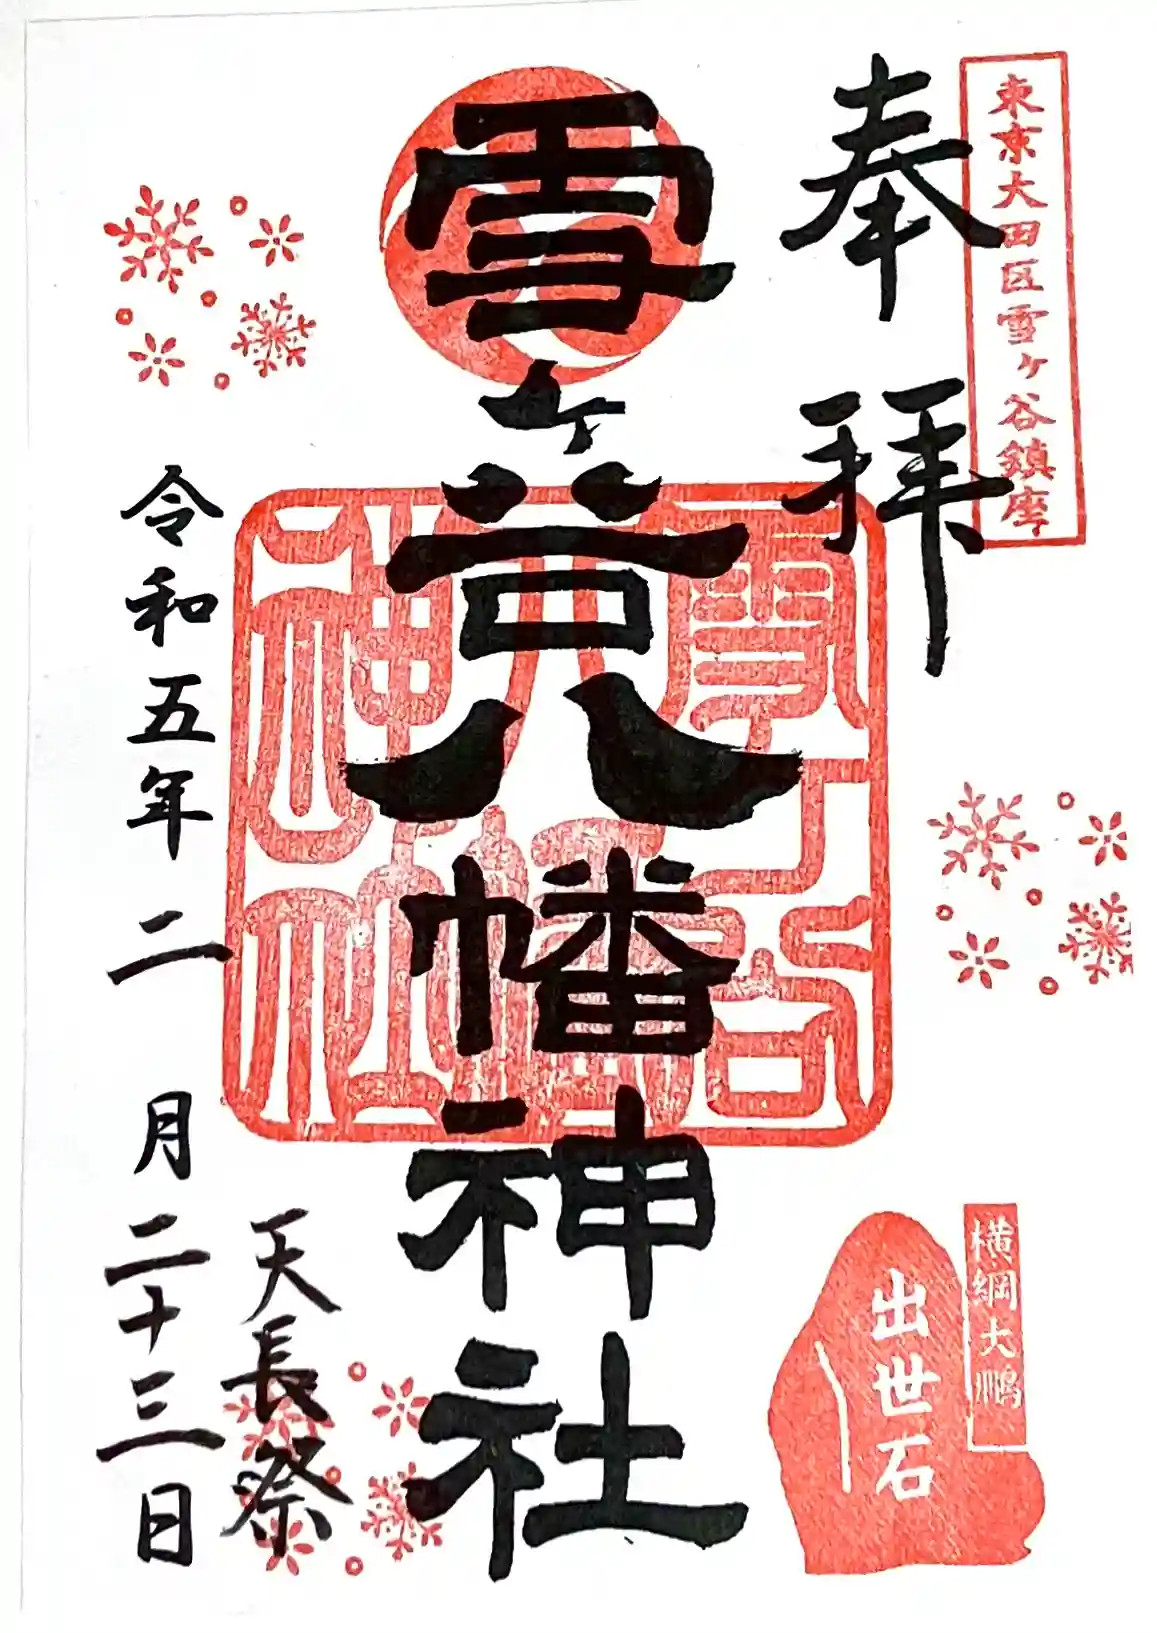 東京大田区雪ヶ谷鎮座
奉拝
雪ヶ谷八幡神社
雪ヶ谷
八幡
神社
天長祭
令和五年二月二十三日
横綱大鵬
出世石